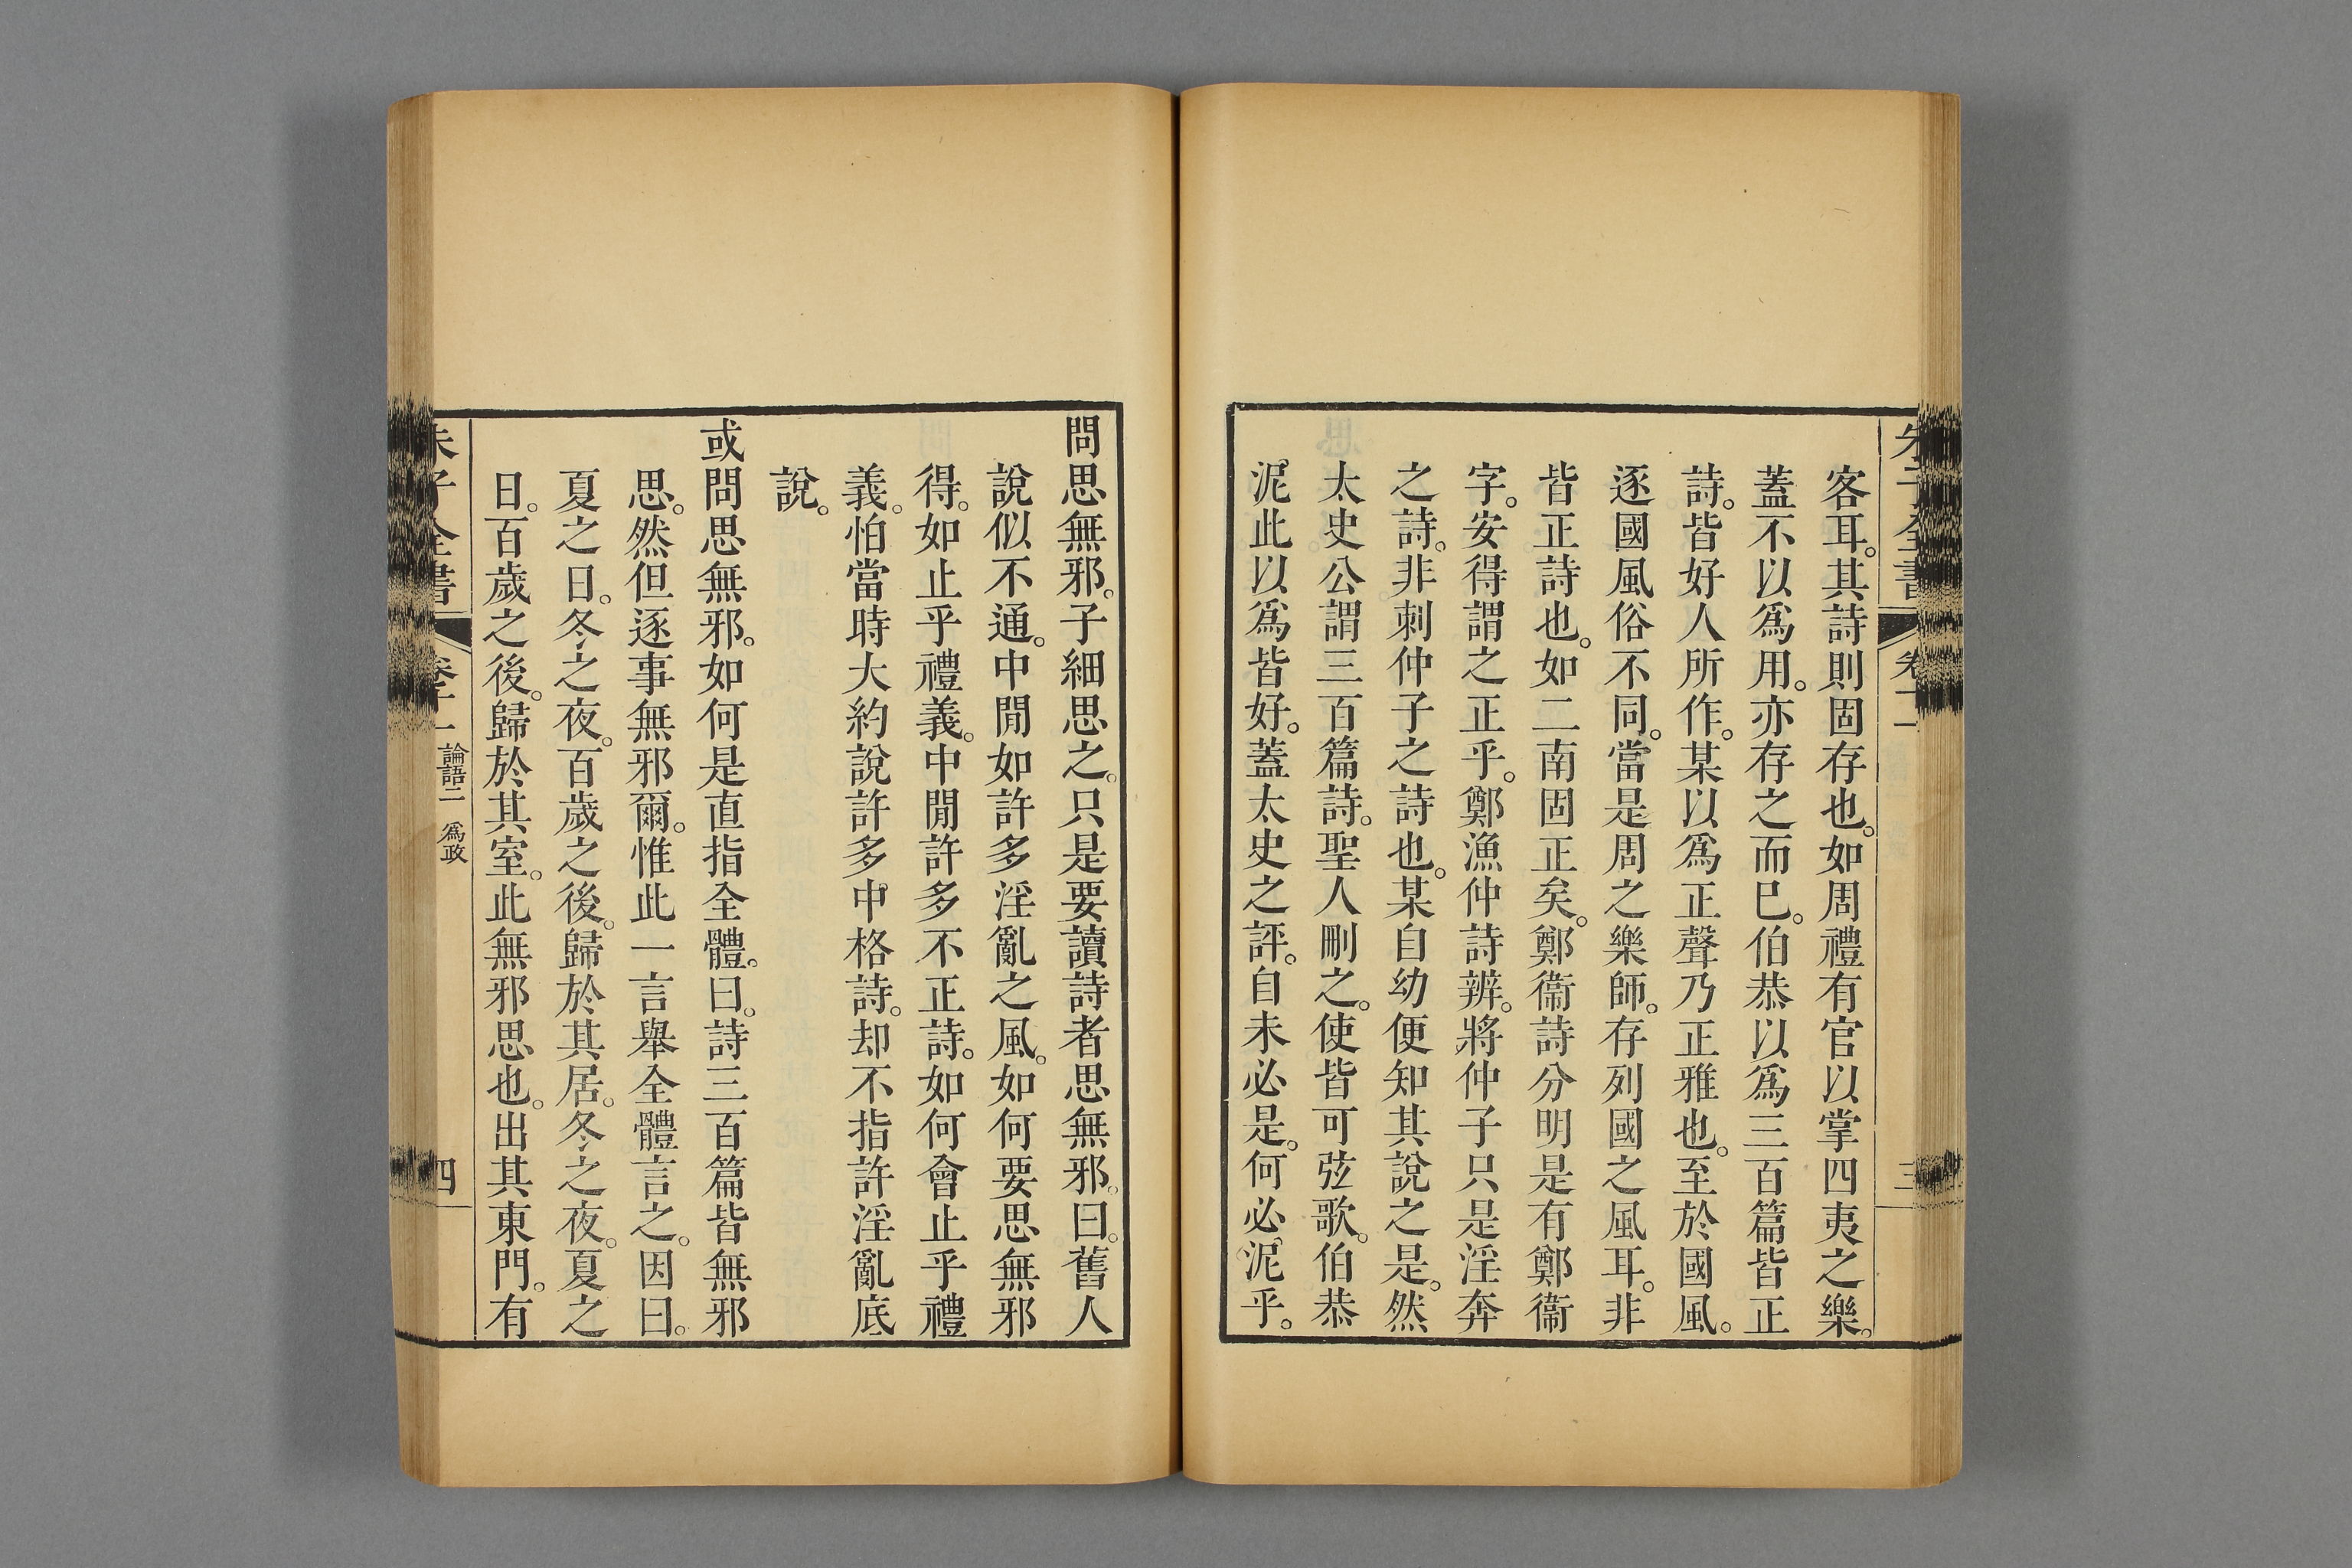 朱子全書 卷十一 三
客耳。其詩則固存也。如周禮有官以掌四夷之樂。
蓋不以爲用。亦存之而已。伯恭以爲三百篇皆正
詩。皆好人所作。某以爲正聲乃正雅也。至於國風。
逐國風俗不同。當是周之樂師。存列國之風耳。非
皆正詩也。如二南固正矣。鄭衞詩分明是有鄭衞
字。安得謂之正乎。鄭漁仲詩辨。將仲子只是淫奔
之詩。非刺仲子之詩也。某自幼便知其說之是。然
太史公謂三百篇詩。聖人刪之。使皆可弦歌。伯恭
泥此以爲皆好。蓋太史之評。自未必是。何必泥乎。
問思無邪。子細思之。只是要讀詩者思無邪。曰。舊人
說似不通。中閒如許多淫亂之風。如何要思無邪
得。如止乎禮義。中閒許多不正詩。如何會止乎禮
義。怕當時大約說許多中格詩。却不指許淫亂底
說。
或問思無邪。如何是直指全體。曰。詩三百篇皆無邪
思。然但逐事無邪爾。惟此一言舉全體言之。因曰。
夏之日。冬之夜。百歲之後。歸於其居。冬之夜。夏之
日。百歲之後。歸於其室。此無邪思也。出其東門。有
朱子全書 卷十一 論語二 爲政 四